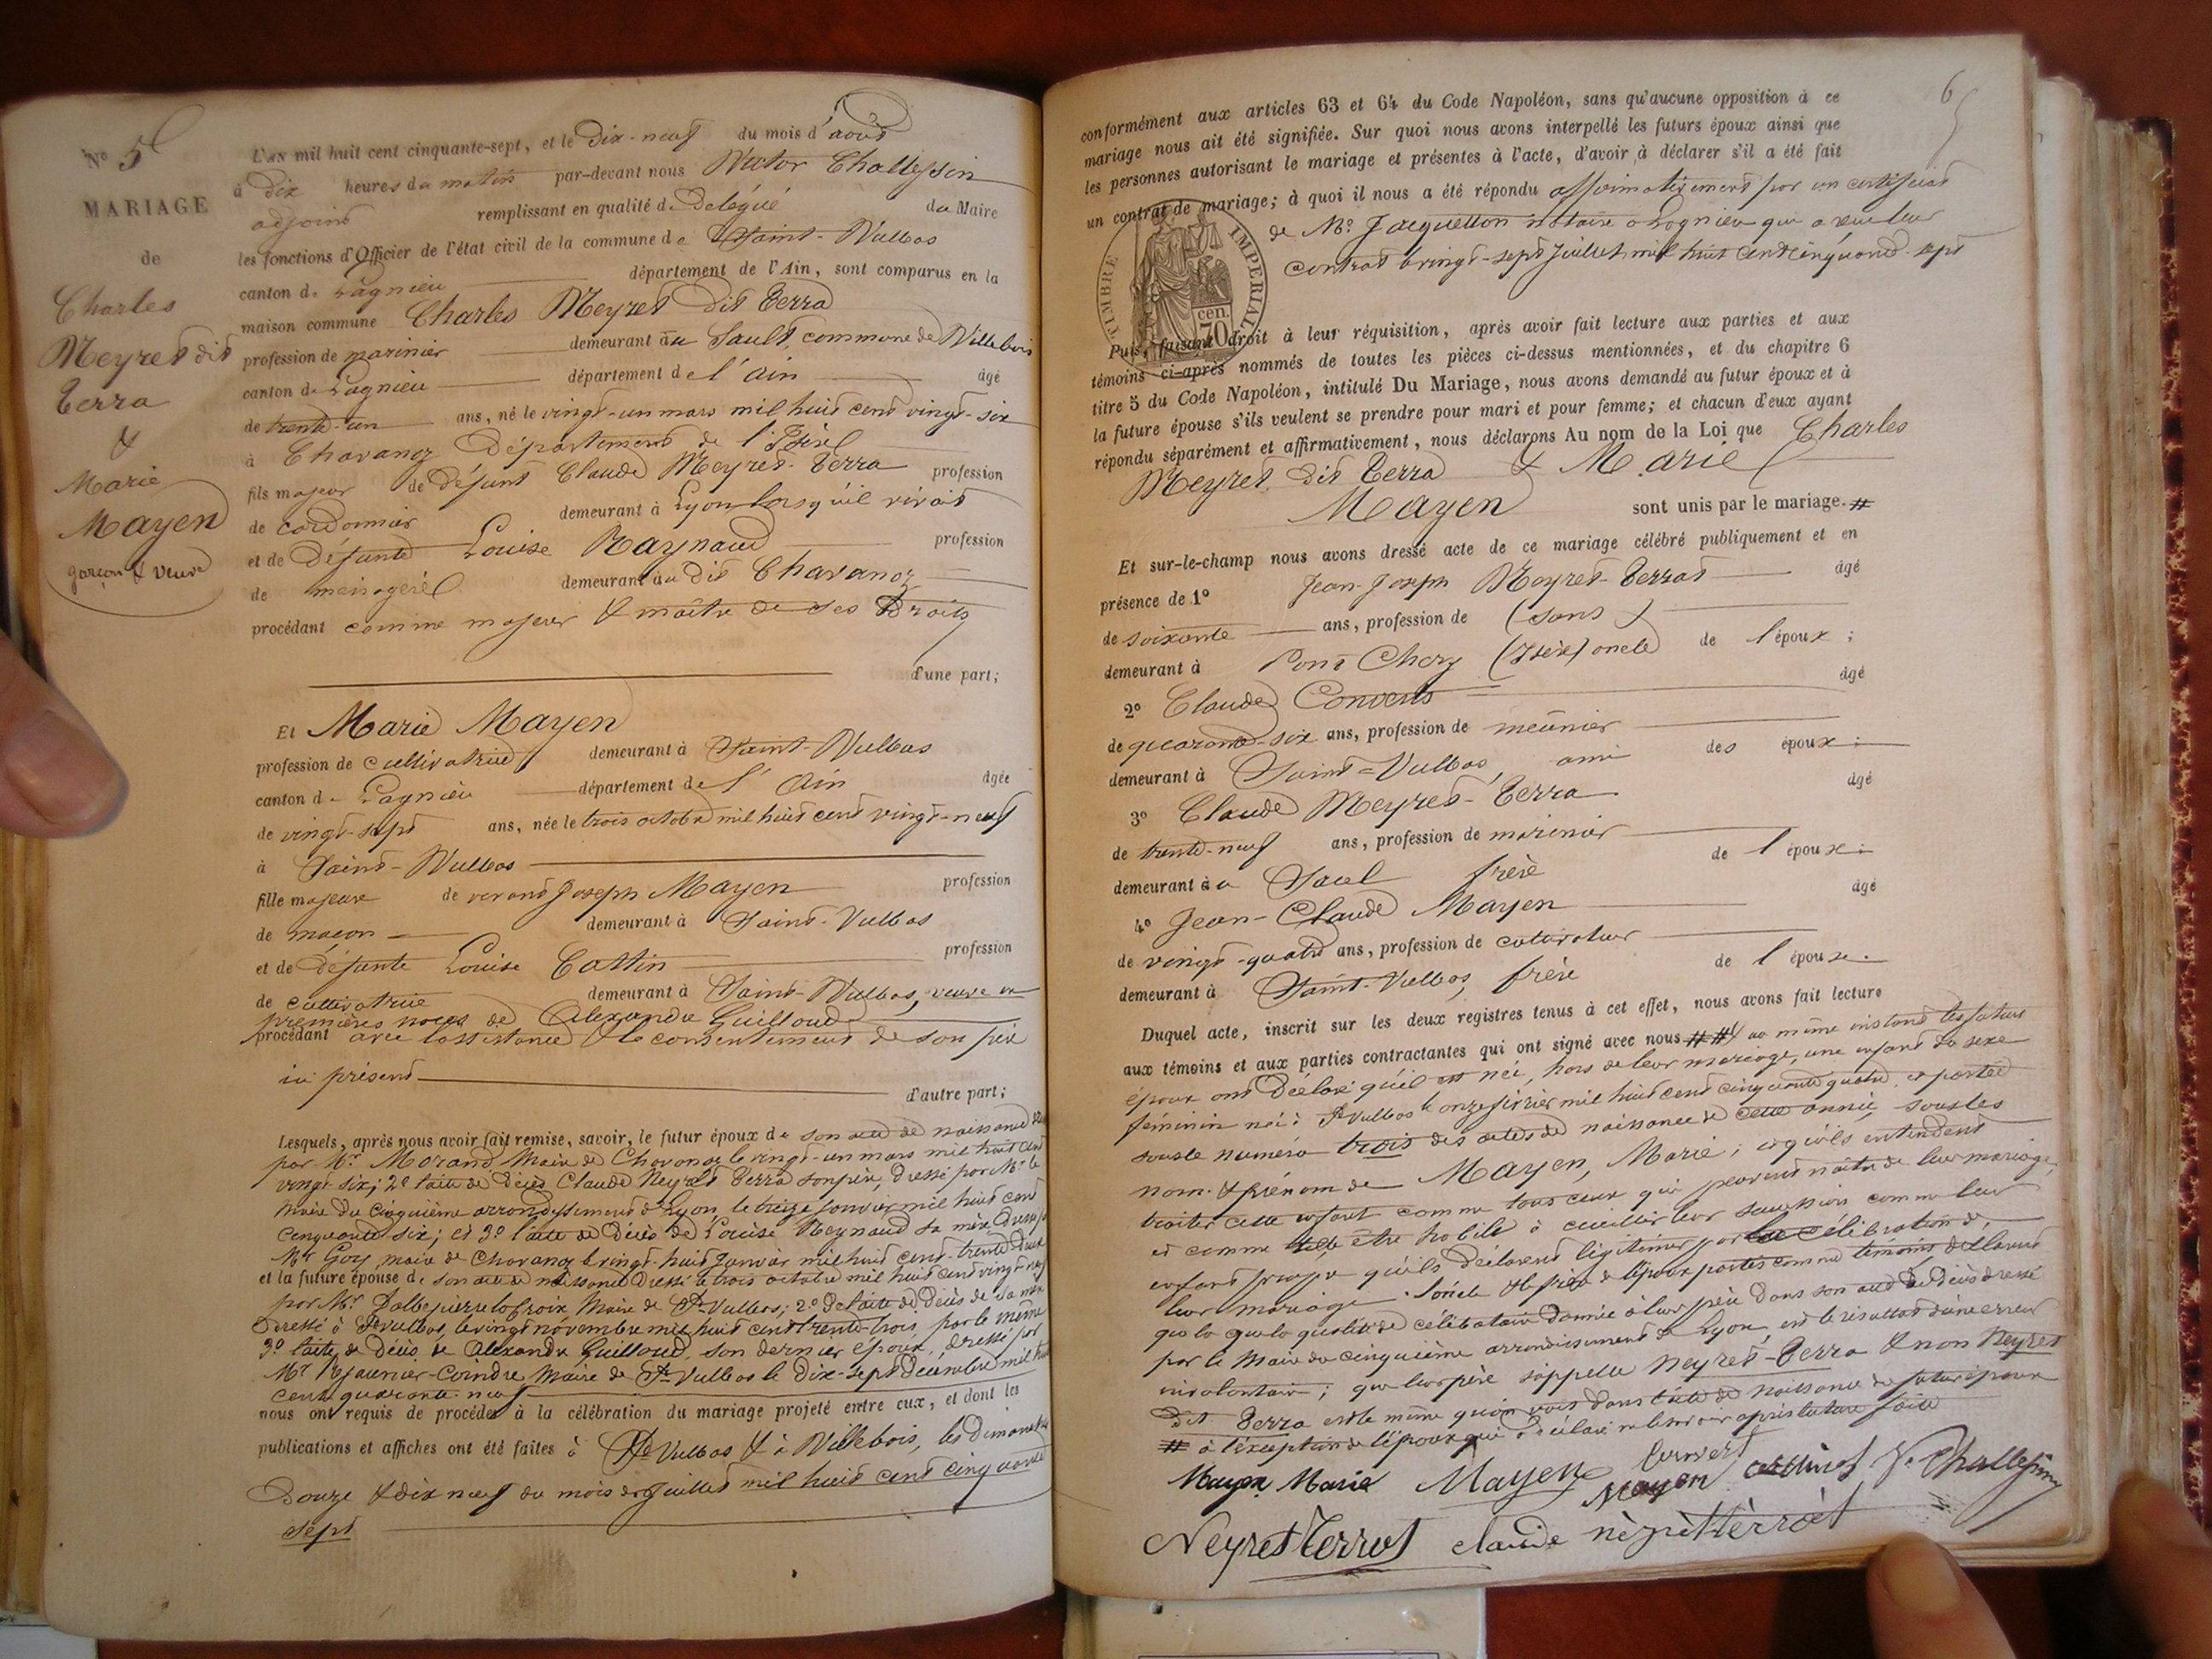 N° 5
MARIAGE
de
Charles
Neyret dit
Terra
&
Marie
Mayen
garçon & veuve
L'AN mil huit cent cinquante-sept, et le dix-neuf du mois d'août
à dix heures du matin par-devant nous Victor Challessin
adjoint remplissant en qualité de Délégué du Maire
les fonctions d'Officier de l'état civil de la commune de Saint-Vulbas
canton de Lagnieu département de l'Ain, sont comparus en la
maison commune Charles Neyret dit Terra
profession de marinier demeurant au Sault, commune de Villebois
canton de Lagnieu département de l'Ain âgé
de trente-un ans, né le vingt-un mars mil huit cent vingt-six
à Chavanoz Département de l'Isère
fils majeur de défunt Claude Neyret-Terra profession
de cordonnier demeurant à Lyon lorsqu'il vivait
et de Défunte Louise Raynaud profession
de ménagère demeurant au dit Chavanoz
procédant comme majeur & maître de ses Droits
d'une part;
Et Marie Mayen
profession de cultivatrice demeurant à Saint-Vulbas
canton de Lagnieu département de l'Ain âgée
de vingt-sept ans, née le trois octobre mil huit cent vingt-neuf
à Saint-Vulbas
fille majeure de vivant Joseph Mayen profession
de maçon demeurant à Saint-Vulbas
et de défunte Louise Cottin profession
de cultivatrice demeurant à Saint-Vulbas, veuve en
premières noces de Alexandre Guilloud
procédant avec l'assistance & le consentement de son père
ici présent
d'autre part;
Lesquels, après nous avoir fait remise, savoir, le futur époux de son acte de naissance
par Mr Morand Maire de Chavanoz le vingt-un mars mil huit cent
vingt-six; 2° l'acte de Décès Claude Neyret Terra son père, dressé par Mr le
Maire du Cinquième arrondissement de Lyon, le treize janvier mil huit cent
cinquante-six; et 3° l'acte de Décès de Louise Reynaud sa mère dressé
Mr Goy, maire de Chavanoz le vingt-huit Janvier mil huit cent trente-deux
et la future épouse de son acte de naissance dressé le trois octobre mil huit cent vingt-neuf
par Mr maire de St Vulbas; 2° de l'acte de Décès de sa mère
Dressé à St Vulbas, le vingt novembre mil huit cent trente-trois par le même
3° l'acte de Décès de Alexandre Guilloud, son dernier époux, dressé par
Mr Maire de St Vulbas le dix-sept Décembre mil huit
cent quarante-neuf
nous ont requis de procéder à la célébration du mariage projeté entre eux, et dont les
publications et affiches ont été faites à St Vulbas & à Villebois, les dimanches
Douze & dix neuf du mois de Juillet mil huit cent cinquante
sept
6
conformément aux articles 63 et 64 du Code Napoléon, sans qu'aucune opposition à ce
mariage nous ait été signifiée. Sur quoi nous avons interpellé les futurs époux ainsi que
les personnes autorisant le mariage et présentes à l'acte, d'avoir à déclarer s'il a été fait
un contrat de mariage; à quoi il nous a été répondu affirmativement par un certificat
de Me Jacquetton notaire à Lagnieu qui a reçu leur
contrat le vingt-sept Juillet mil huit cent cinquante-sept
TIMBRE IMPERIAL
cen.
70
Puis, faisant droit à leur réquisition, après avoir fait lecture aux parties et aux
témoins ci-après nommés de toutes les pièces ci-dessus mentionnées, et du chapitre 6
titre 5 du Code Napoléon, intitulé Du Mariage, nous avons demandé au futur époux et à
la future épouse s'ils veulent se prendre pour mari et pour femme; et chacun d'eux ayant
répondu séparément et affirmativement, nous déclarons Au nom de la Loi que Charles
Neyret dit Terra & Marie
Mayen sont unis par le mariage. #
Et sur-le-champ nous avons dressé acte de ce mariage célébré publiquement et en
présence de 1° Jean-Joseph Neyret-Terrat âgé
de soixante ans, profession de (sans)
demeurant à Pont Chery (Isère) oncle de l'époux;
2° Claude Convert âgé
de quarante-six ans, profession de meûnier
demeurant à Saint-Vulbas, ami des époux;
3° Claude Neyret-Terra âgé
de trente-neuf ans, profession de marinier
demeurant au Saul frère de l'époux;
4° Jean-Claude Mayen âgé
de vingt-quatre ans, profession de cultivateur
demeurant à Saint-Vulbas, frère de l'épouse.
Duquel acte, inscrit sur les deux registres tenus à cet effet, nous avons fait lecture
aux témoins et aux parties contractantes qui ont signé avec nous ## au même instant les futurs
époux ont Déclaré qu'il est né, hors de leur mariage, une enfant du sexe
féminin née à St Vulbas le onze février mil huit cent cinquante quatre, et portée
sous le numéro trois des actes de naissance de cette année, sous les
nom & prénom de Mayen, Marie; et qu'ils entendent
traiter cette enfant comme tous ceux qui peuvent naître de leur mariage,
et comme telle être habile à cueillir leur succession comme leur
enfant propre qu'ils déclarent légitimer par la célébration de
leur mariage. l'oncle & le frère de l'époux portés comme témoins déclarent
que la qualité de célibataire donnée à leur père dans son acte de Décès dressé
par le Maire du cinquième arrondissement de Lyon, est le résultat d'une erreur
involontaire; que leur père s'appelle Neyret-Terra & non Neyret
dit Terra est le même qu'on voit dans l'acte de naissance du futur époux
# à l'exception de l'époux qui a déclaré ne le savoir après lecture faite
Mayen Marie Mayen Convert Mayen adjoint V. Challessin
Neyret Terrot claude nèyrèt tèrrat